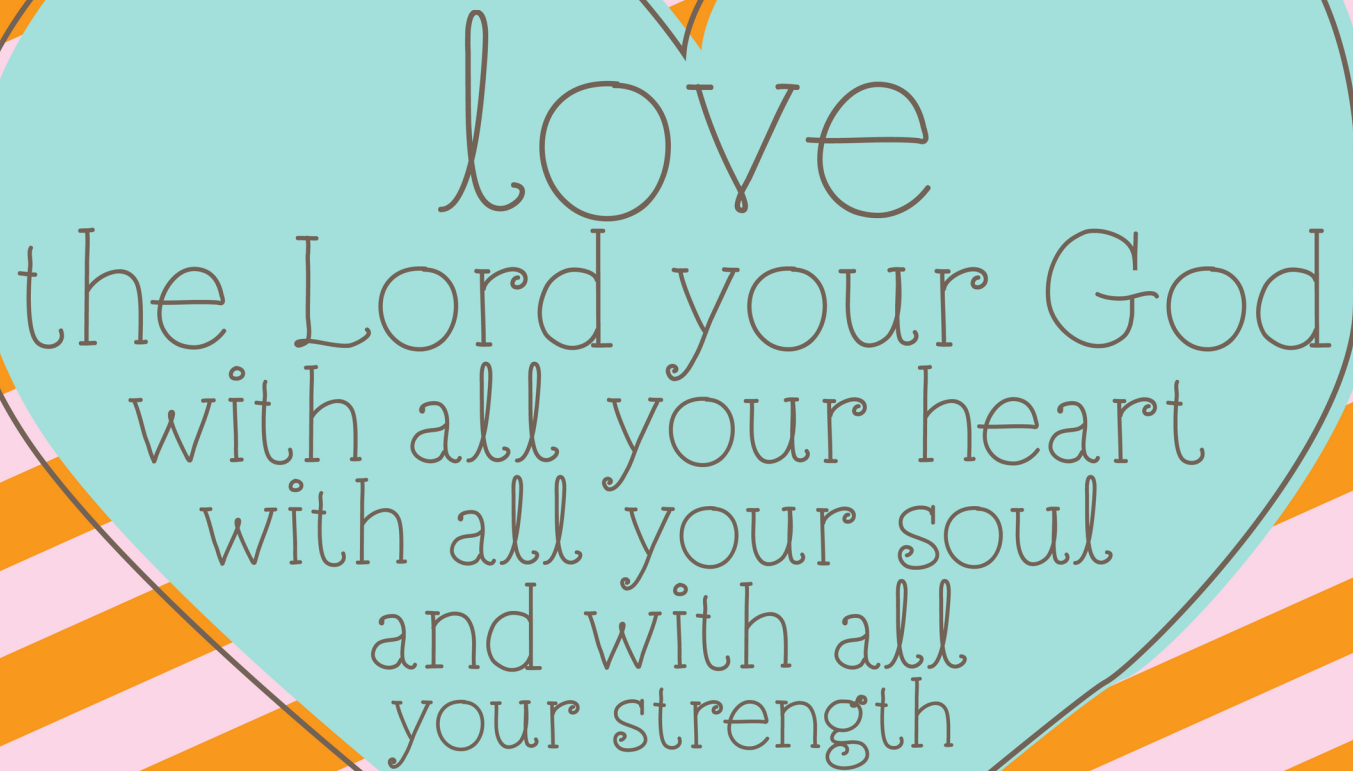 love
the Lord your God
with all your heart
with all your soul
and with all
your strength